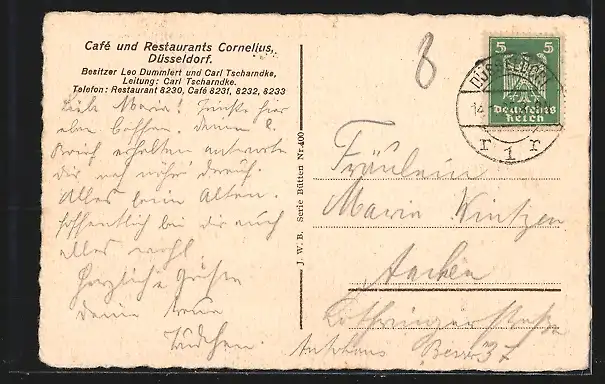 Café und Restaurants Cornelius,
Düsseldorf.
Besitzer Leo Dummlert und Carl Tscharndke,
Leitung: Carl Tscharndke.
Telefon: Restaurant 8230, Café 8231, 8232, 8233
Liebe Maria! hier
eben Deinen l.
Brief erhalten antworte
Dir
Alles beim Alten.
Hoffentlich bei Dir auch
alles wohl
Herzliche Grüße
Deine
J. W. B. Serie Bütten Nr. 400
8
5 5
Deutsches
Reich
DÜSSELDORF
14
r 1 r
Fräulein
Maria Wintzen
Aachen
Lothringerstraße
37